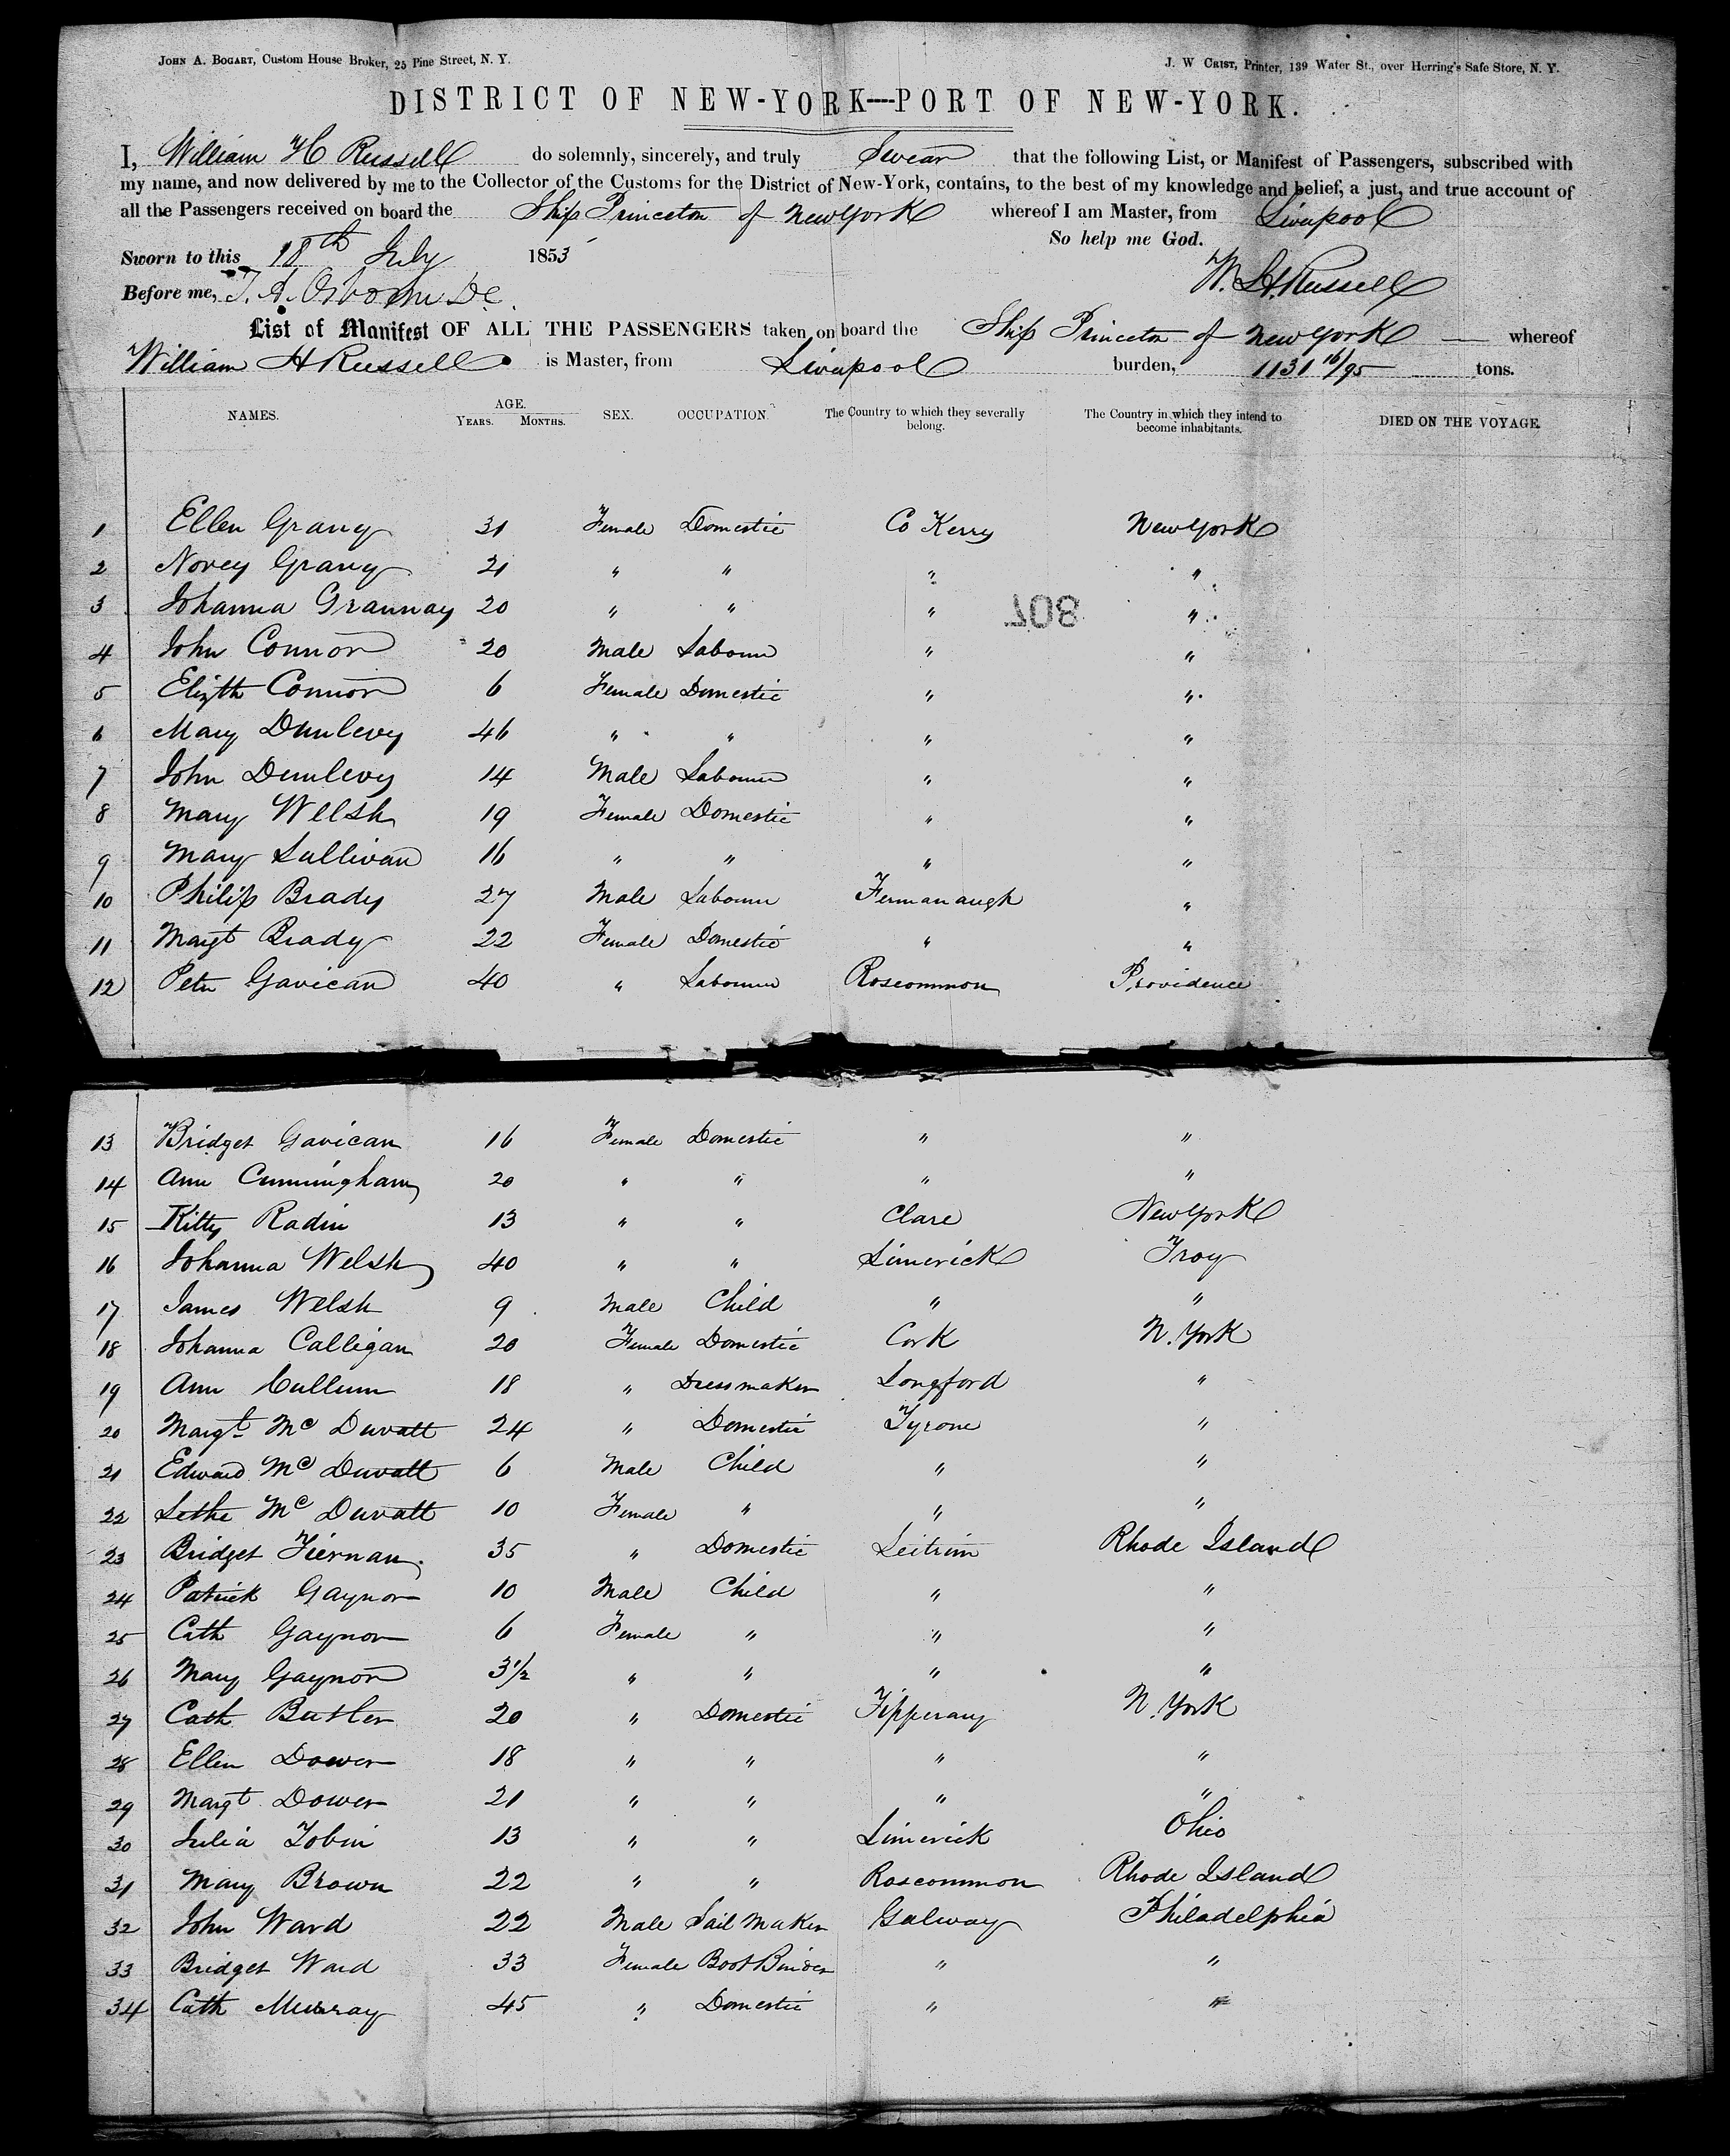 JOHN A. BOGART, Custom House Broker, 25 Pine Street, N. Y.
J. W CRIST, Printer, 139 Water St., over Herring's Safe Store, N. Y.
DISTRICT OF NEW-YORK—PORT OF NEW-YORK.
I, William H Russell do solemnly, sincerely, and truly Swear that the following List, or Manifest of Passengers, subscribed with
my name, and now delivered by me to the Collector of the Customs for the District of New-York, contains, to the best of my knowledge and belief, a just, and true account of
all the Passengers received on board the Ship Princeton of New York whereof I am Master, from Liverpool
So help me God.
Sworn to this 18th July 1853
W. H. Russell
Before me, T. A. Osborne DC
List of Manifest OF ALL THE PASSENGERS taken on board the Ship Princeton of New York whereof
William H Russell is Master, from Liverpool burden, 1131 16/95 tons.
NAMES. AGE. YEARS. MONTHS. SEX. OCCUPATION. The Country to which they severally belong. The Country in which they intend to become inhabitants. DIED ON THE VOYAGE.
1 Ellen Grany 31 Female Domestic Co Kerry New York
2 Norey Grany 21 " " " "
3 Johanna Grannay 20 " " " "
807
4 John Connor 20 Male Labourer " "
5 Elizth Connor 6 Female Domestic " "
6 Mary Dunlevy 46 " " " "
7 John Dunlevy 14 Male Labourer " "
8 Mary Welsh 19 Female Domestic " "
9 Mary Sullivan 16 " " " "
10 Philip Brady 27 Male Labourer Fermanaugh "
11 Margt Brady 22 Female Domestic " "
12 Peter Gavican 40 " Labourer Roscommon Providence
13 Bridget Gavican 16 Female Domestic " "
14 Ann Cunningham 20 " " " "
15 Kitty Radin 13 " " Clare New York
16 Johanna Welsh 40 " " Limerick Troy
17 James Welsh 9 Male Child " "
18 Johanna Calligan 20 Female Domestic Cork N. York
19 Ann Cullum 18 " Dressmaker Longford "
20 Margt Mc Duvatt 24 " Domestic Tyrone "
21 Edward Mc Duvatt 6 Male Child " "
22 Lethe Mc Duvatt 10 Female " " "
23 Bridget Tiernan 35 " Domestic Leitrim Rhode Island
24 Patrick Gaynor 10 Male Child " "
25 Cath Gaynor 6 Female " " "
26 Mary Gaynor 3 1/2 " " " "
27 Cath Butler 20 " Domestic Tipperary N. York
28 Ellen Dower 18 " " " "
29 Margt Dower 21 " " " "
30 Julia Tobin 13 " " Limerick Ohio
31 Mary Brown 22 " " Roscommon Rhode Island
32 John Ward 22 Male Sail Maker Galway Philadelphia
33 Bridget Ward 33 Female Boot Binder " "
34 Cath Murray 45 " Domestic " "